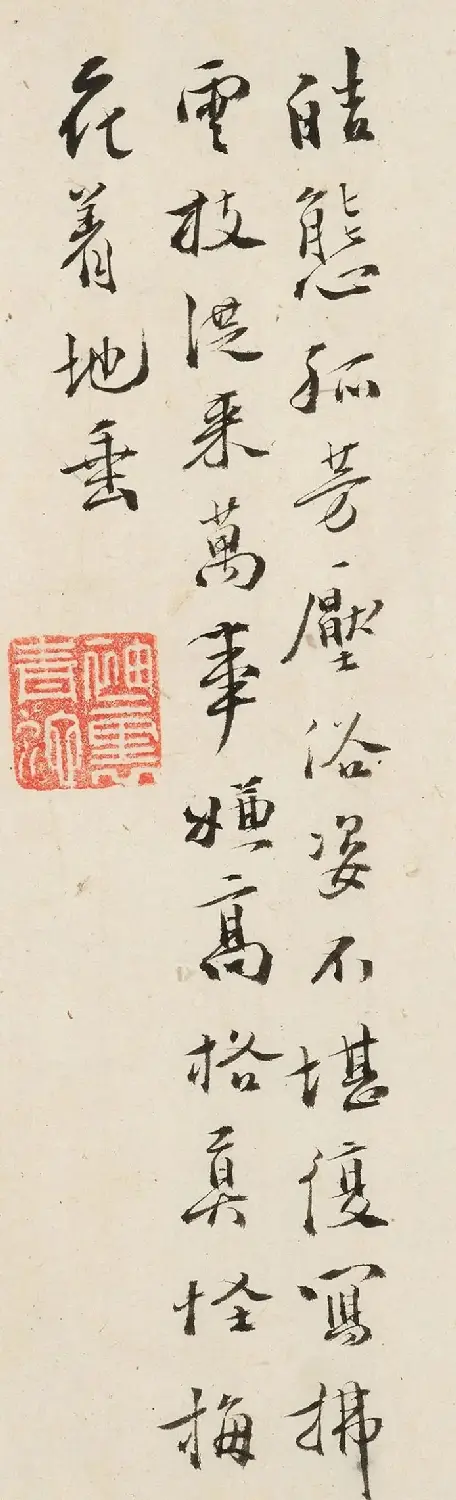 皓態孤芳壓俗姿不堪復寫拂
雲枝從来萬事嫌高格莫怪梅
花着地垂